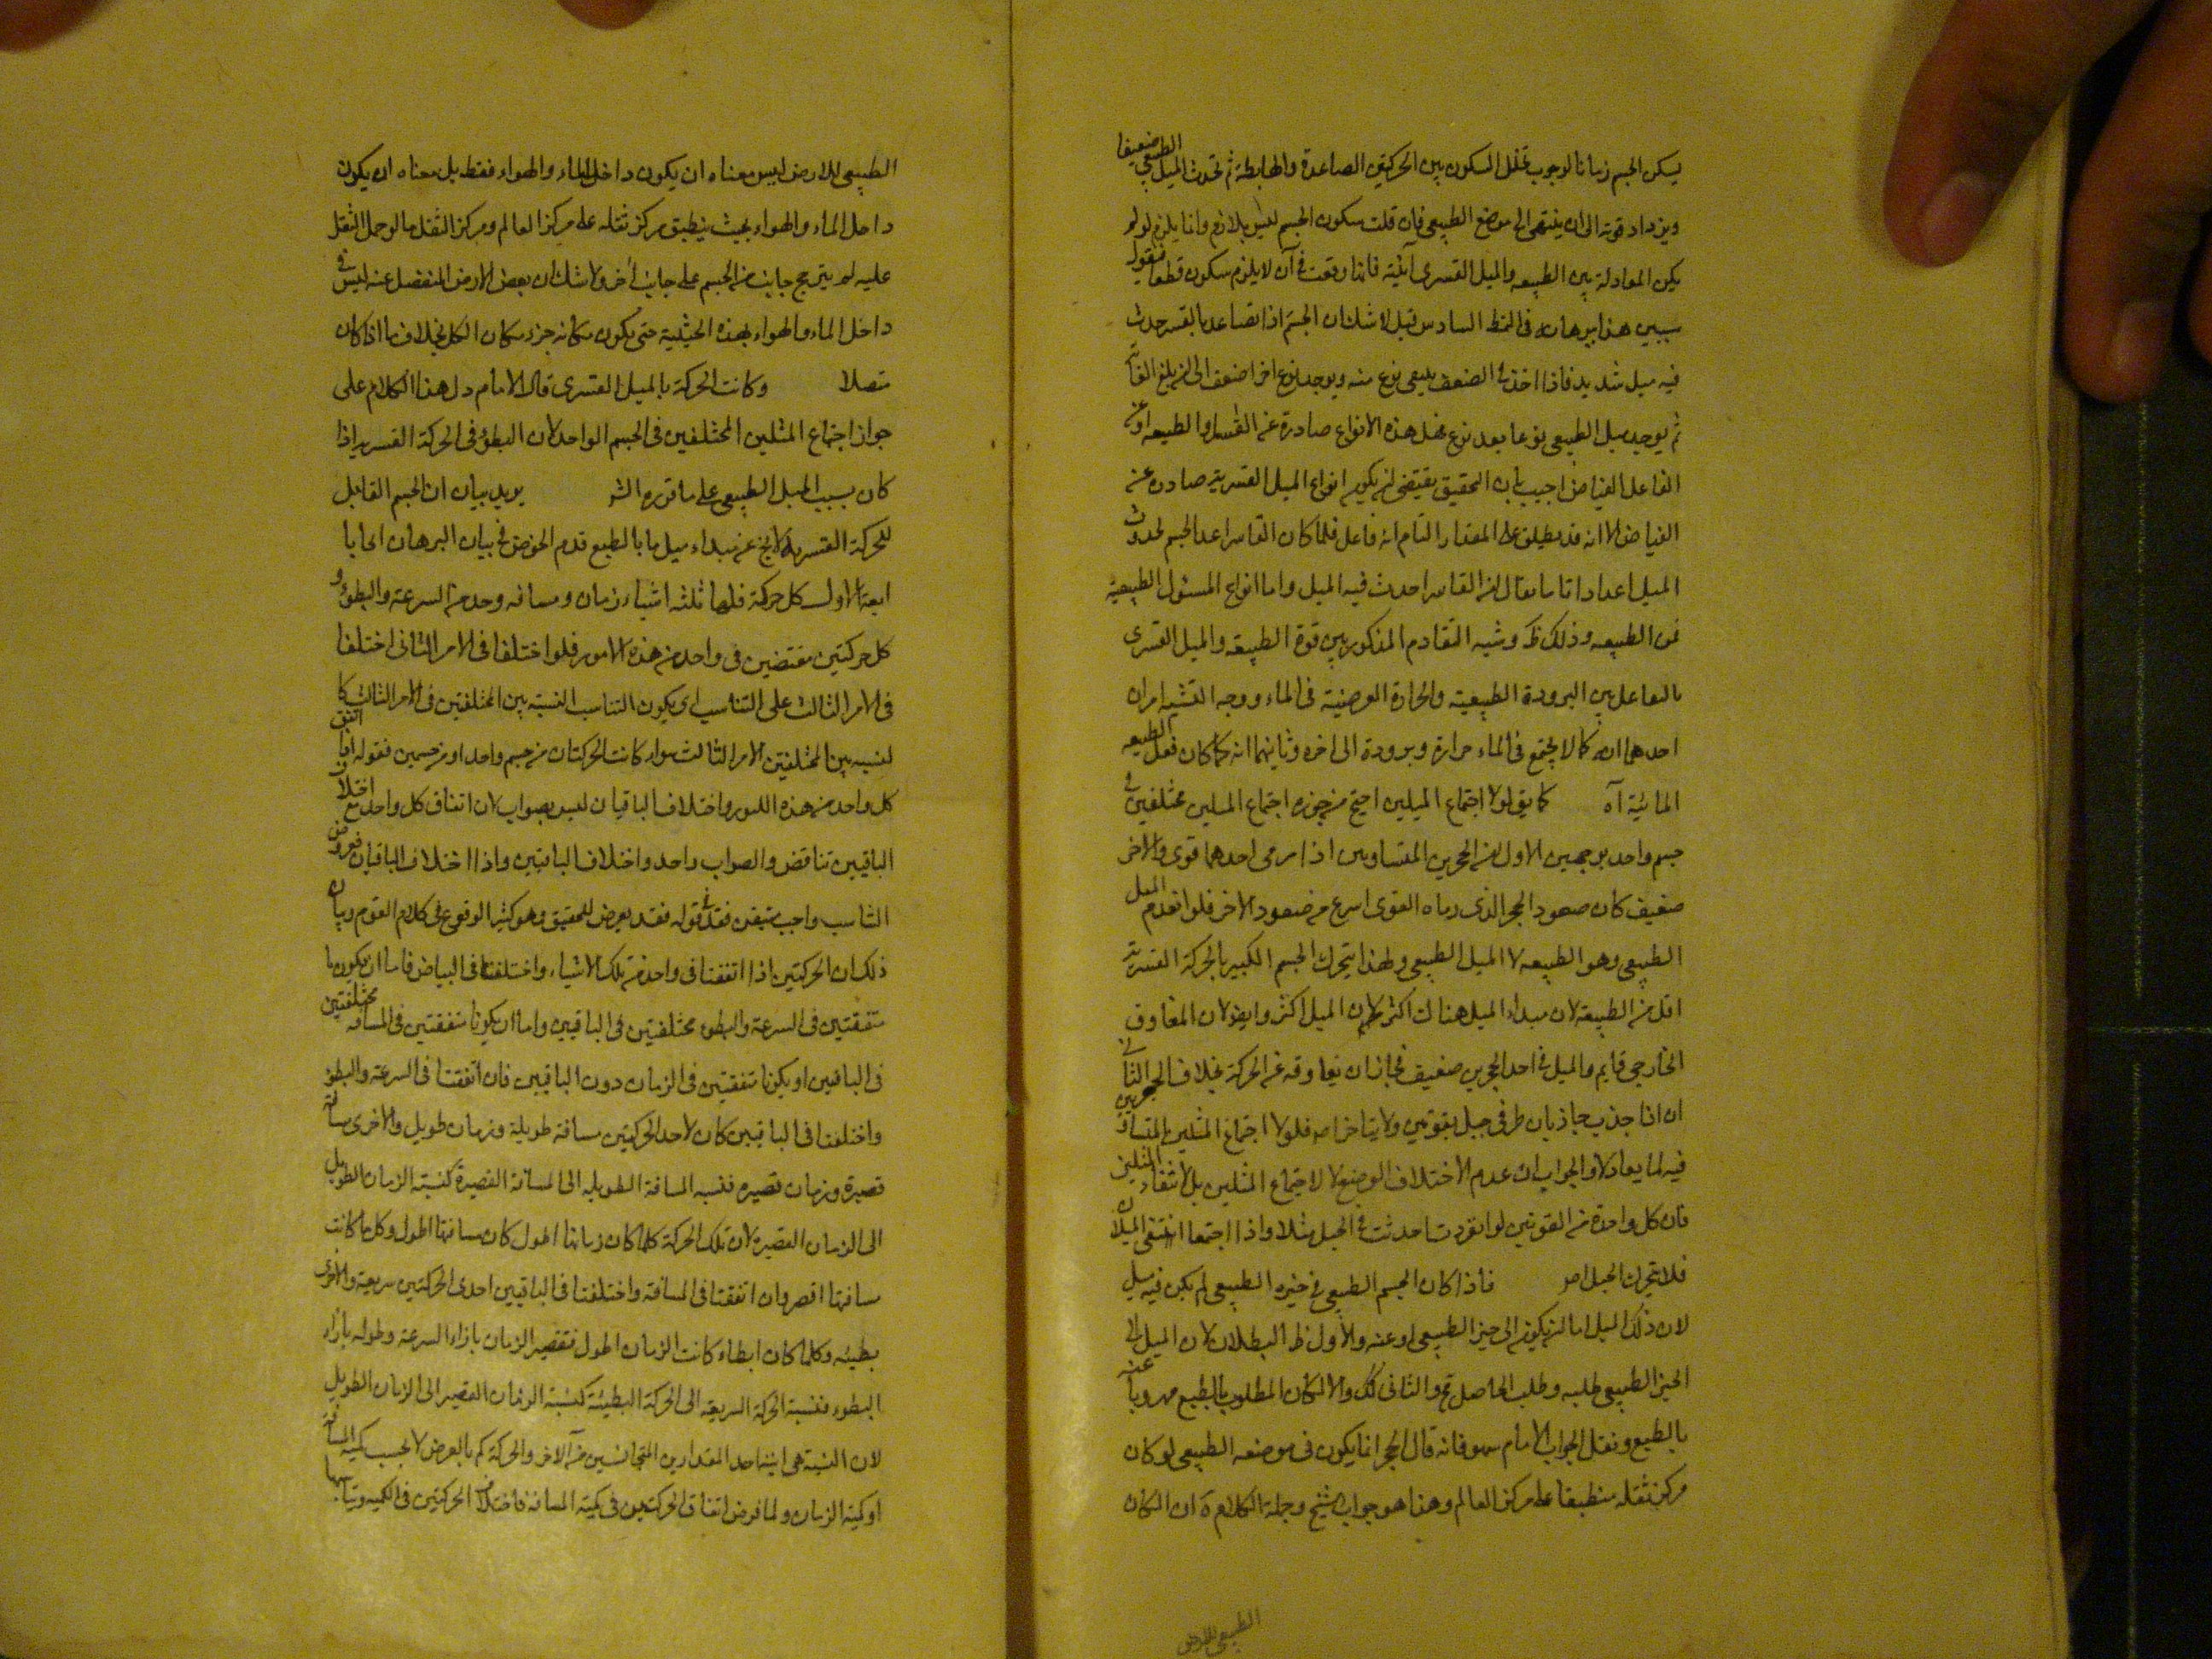 يسكن الجسم زمانا لوجوب تخلل السكون بين الحركتين الصاعدة والهابطة ثم تحدث الميل الطبيعي ضعيفا
ويزداد قوته الى ان ينتهى الى موضع الطبيعى فان قلت سكون الجسم ليس بلازم وانما يلزم لو لم
يكن المعادلة بين الطبيعه والميل القسرى آنية فانها وقعت فى آن لا يلزم سكون قطعا فنقول
سيبين هذا ببرهان فى النمط السادس قيل لا شك ان الجسم اذا تصاعد بالقسر حدث
فيه ميل شديد فاذا اخذ فى الضعف يبقى نوع منه ويوجد نوع اخر اضعف الى ان يبلغ الغاية
ثم يوجد ميل الطبيعى نوعا بعد نوع فهل هذه الانواع صادرة عن القسر او الطبيعه او عن
الفاعل الفياض اجيب بان التحقيق يقتضى ان يكون انواع الميل القسرية صادرة عن
الفياض الا انه قد يطلق على المعد التام انه فاعل فلما كان القاسر اعد الجسم لحدوث
الميل اعدادا تاما يقال ان القاسر احدث فيه الميل واما انواع الميول الطبيعية
فمن الطبيعه وذلك ظ وشبه التقادم المذكور بين قوة الطبيعه والميل القسرى
بالتفاعل بين البرودة الطبيعية والحرارة العرضية فى الماء ووجه التشبيه امران
احدهما انه كما لا يجتمع فى الماء حرارة وبرودة الى اخره وثانيهما انه كما كان فعل الطبيعه
المائية آه كما يق لولا اجتماع الميلين احتج من جوزه اجتماع الميلين مختلفين فى
جسم واحد بوجهين الاول ان الحجرين المتساويين اذا رمى احدهما قوى والاخر
ضعيف كان صعود الحجر الذى رماه القوى اسرع من صعود الاخر فلو انعدم الميل
الطبيعى وهو الطبيعه لا الميل الطبيعى ولهذا يتحرك الجسم الكبير بالحركة القسرية
اقل من الطبيعة لان مبداء الميل هناك اكثر لا لان الميل اكثر وايضا لان المعاوق
الخارجى قايم والميل فى احد الحجرين ضعيف فجاز ان يعاوقه عن الحركة بخلاف الحجر الثانى
ان اذا جذب جاذبان طرفى حبل بقوتين ولا يتاخر امه فلولا اجتماع المثلين المتساويين
فيه لما يعادلا والجواب ان عدم الاختلاف الوضع لا لاجتماع المثلين بل لانتفاء المثلين
فان كل واحدة من القوتين لو انفردت احدثت فى الحبل مثلا واذا اجتمعا انتفى الميلان
فلا يتحرك الحبل اصو فاذا كان الجسم الطبيعى فى حيزه الطبيعى لم يكن فيه ميل
لان ذلك الميل اما ان يكون الى حيز الطبيعى او عنه والاول ظ البطلان لان الميل الى
الحيز الطبيعى طلبه وطلب الحاصل مح والثانى كك والا لكان المطلوب بالطبع مهروبا عنه
بالطبع ونقل الجواب الامام سهو فانه قال الحجر انما يكون فى موضعه الطبيعى لو كان
مركز ثقله منطبقا على مركز العالم وهذا هو جواب الشيخ وجملة الكلام ان المكان
الطبيعى للارض
الطبيعى للارض ليس معناه ان يكون داخل الماء والهواء فقط بل معناه ان يكون
داخل الماء والهواء بحيث ينطبق مركز ثقله على مركز العالم ومركز الثقل ما لو حمل الثقل
عليه لم يترجح جانب من الجسم على جانب اخر ولا شك ان بعض الارض المنفصل عنه ليس فى
داخل الماء والهواء بهذه الحيثية حتى يكون مكانه جزء مكان الكل بخلاف ما اذا كان
متصلا وكانت الحركة بالميل القسرى قال الامام دل هذا الكلام على
جواز اجتماع المثلين المختلفين فى الجسم الواحد لان البطؤ فى الحركة القسريه اذا
كان بسبب الميل الطبيعى على ما قرره الش يريد بيان ان الجسم القابل
للحركة القسرية لا يخ عن مبداء ميل ما بالطبع قدم الخوض فى بيان البرهان ابحاثا
ابعة الاول كل حركة فلها ثلثه اشياء زمان ومسافه وحد من السرعة والبطؤ و
كل حركتين مفتضين فى واحد من هذه الامور فلو اختلفا فى الامر الثانى اختلفا
فى الامر الثالث على التناسب اى يكون التناسب النسبة بين المختلفتين فى الامر الثالث كا
لنسبه بين المختلفتين الامر الثالث سواء كانت الحركتان من جسم واحد او من جسمين فقوله اذا اتفق
كل واحد من هذه الامور واختلاف الباقيان ليس بصواب لان اتفاق كل واحد مع اختلاف
الباقيين تناقض والصواب واحد واختلاف الباقيين واذا اختلاف الباقيان فعروض
التناسب واجب متيقن فقد فى قوله فقد يعرض للتحقيق وهو كثير الوقوع فى كلام القوم وبيان
ذلك ان الحركتين اذا اتفقتا فى واحد من تلك الاشياء واختلفتا فى البياض فاما ان يكونا
متفقتين فى السرعة والبطوء مختلفتين فى الباقيين واما ان يكونا متفقتين فى المسافه مختلفتين
فى الباقين او يكونا متفقتين فى الزمان دون الباقيين فان اتفقتا فى السرعة والبطؤ
واختلفتا فى الباقيين كان لاحد الحركتين مسافة طويلة وزمان طويل والاخرى مسافة
قصيرة وزمان قصيره فنسبه المسافة الطويله الى المسافة القصيرة كنسبة الزمان الطويل
الى الزمان القصيره لان تلك الحركة كلما كان زمانها اطول كان مسافتها اطول وكل ما كانت
مسافتها اقصر وان اتفقتا فى المسافة واختلفتا فى الباقيين احدى الحركتين سريعة والاخرى
بطيئه وكلما كان ابطاء كانت الزمان اطول فتقصير الزمان بازاء السرعة وطوله بازاء
البطوء فنسبة الحركة السريعه الى الحركة البطيئة كنسبة الزمان القصير الى الزمان الطويل
لان النسبة هى ايئية احد المقدارين المتجانسين من الاخر والحركة كم بالعرض لا بحسب كمية المسافة
او كمية الزمان ولما فرض اتفاق الحركتين فى كمية المسافة فاختلاف الحركتين فى الكميه وتناسبها